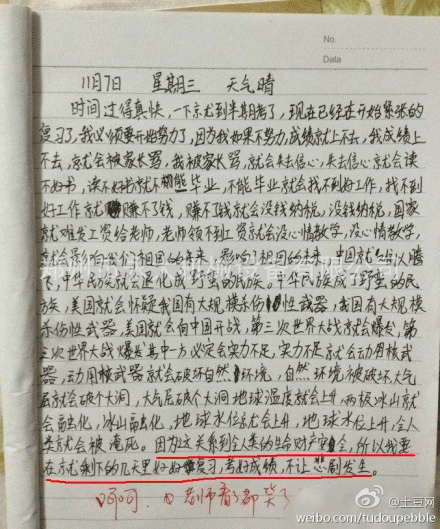 No.
Data
11月7日 星期三 天气晴
时间过得真快,一下就到半期考了,现在已经走开始紧张的
复习了,我必须要开始努力了,因为我如果不努力,成绩就上不去,我成绩上
不去,就会被家长骂,我被家长骂,就会失去信心,失去信心就会读
不好书,读不好书就不能毕业,不能毕业就会找不到好工作,找不到
好工作就赚不了钱,赚不了钱就会没钱纳税,没钱纳税,国家
就难发工资给老师,老师领不到工资就会没心情教学,没心情教学,
就会影响我们祖国的未来,影响了祖国的未来,中国就难以腾
飞,中华民族就会退化成野蛮的民族。中华民族成了野蛮的民
族,美国就会怀疑我国有大规模杀伤性武器,我国有大规模
杀伤性武器,美国就会向中国开战,第三次世界大战就爆发,第
三次世界大战爆发其中一方必定会实力不足,实力不足就会动用核武
器,动用核武器就会破坏自然环境,自然环境被破坏,大气
层就会破个大洞,大气层破个大洞地球温度就会上升,两极冰山就
会融化,冰山融化,地球水位就会上升,地球水位上升,全人
类就会被淹死。因为这关系到全人类的生命财产安全,所以我要
在就剩下的几天里好好复习,考好成绩,不让悲剧发生。
呵呵。老师看了都笑了
土豆网
weibo.com/tudoupebble